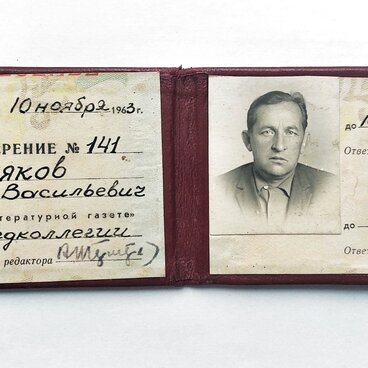 10 ноября 1963 г.
РЕНИЕ № 141
яков
Васильевич
тературной газете»
дколлегии
редактора
до
Ответ
до
Ответ